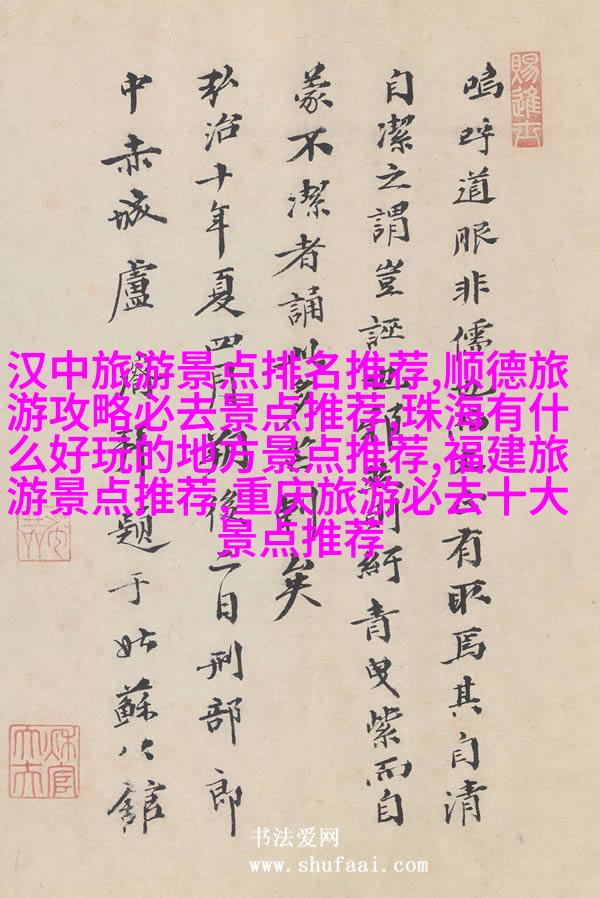 嗚呼道眼非儒有取焉其自清
自潔之謂豈誣紆青曳紫而自
蒙不潔者誦矣
弘治十年夏四月朔後二日刑部郎
中赤城盧題于姑蘇公館
賜進士
汉中旅游景点排名推荐,顺德旅
游攻略必去景点推荐,珠海有什
么好玩的地方景点推荐,福建旅
游景点推荐,重庆旅游必去十大
景点推荐
书法爱网
www.shufaai.com